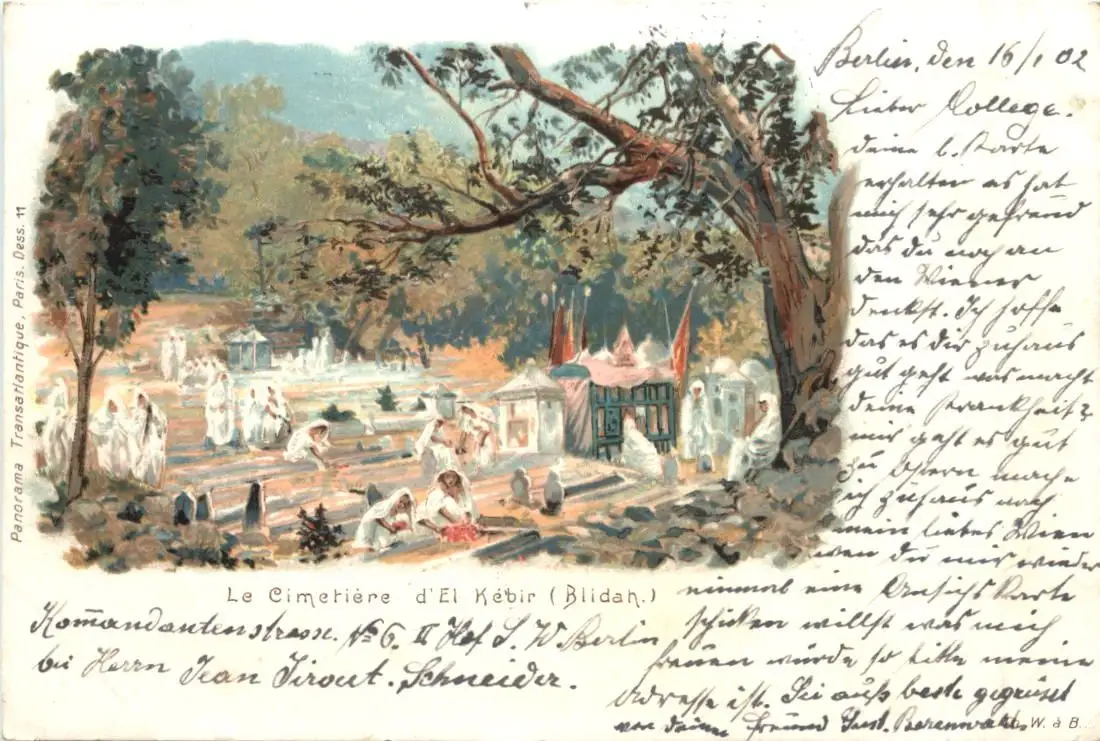 Berlin, den 16/1 02
Lieber College.
deine l. Karte
erhalten es hat
mich sehr gefreund
das du noch an
den Wiener
denkst. Ich hoffe
das es dir zuhaus
gut geht was macht
deine Krankheit?
mir geht es gut
zu Ostern mache
ich zuhaus nach
mein liebes Wien
wen du mir wieder
einmal eine Ansichskarte
schicken willst was mich
freuen würde so bitte meine
Adresse ist. Sei aufs beste gegrüset
von deinen freund Just.
Panorama Transatlantique, Paris. Dess. 11
Le Cimetière d'El Kébir (Blidah.)
Kom̅andantenstrasse. No 6. II Hof S. W. Berlin
bei Herrn Jean Tirout. Schneider.
W. à B.